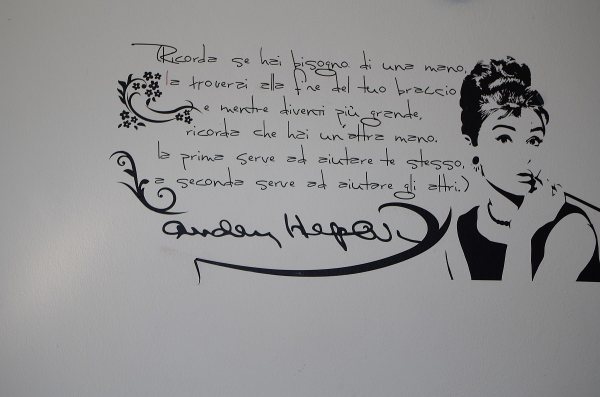 Ricorda se hai bisogno di una mano,
la troverai alla fine del tuo braccio
e mentre diventi più grande,
ricorda che hai un'altra mano.
la prima serve ad aiutare te stesso,
a seconda serve ad aiutare gli altri.)
Audrey Hepburn